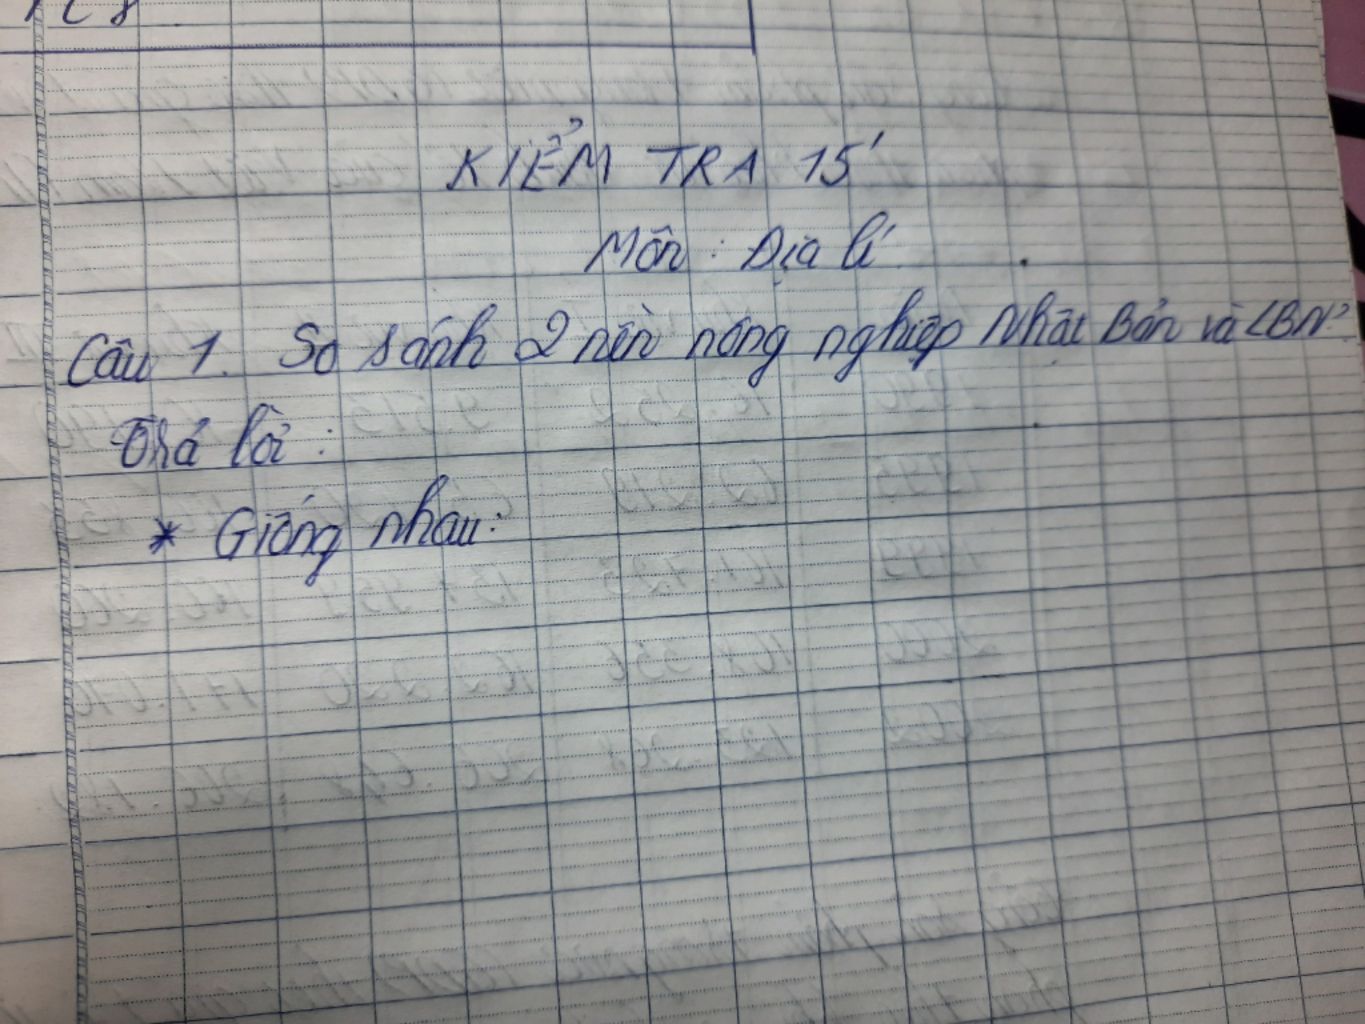 KIỂM TRA 15'
Môn: Địa lí
Câu 1. So sánh 2 nền nông nghiệp Nhật Bản và LBN?
Trả lời:
* Giống nhau: